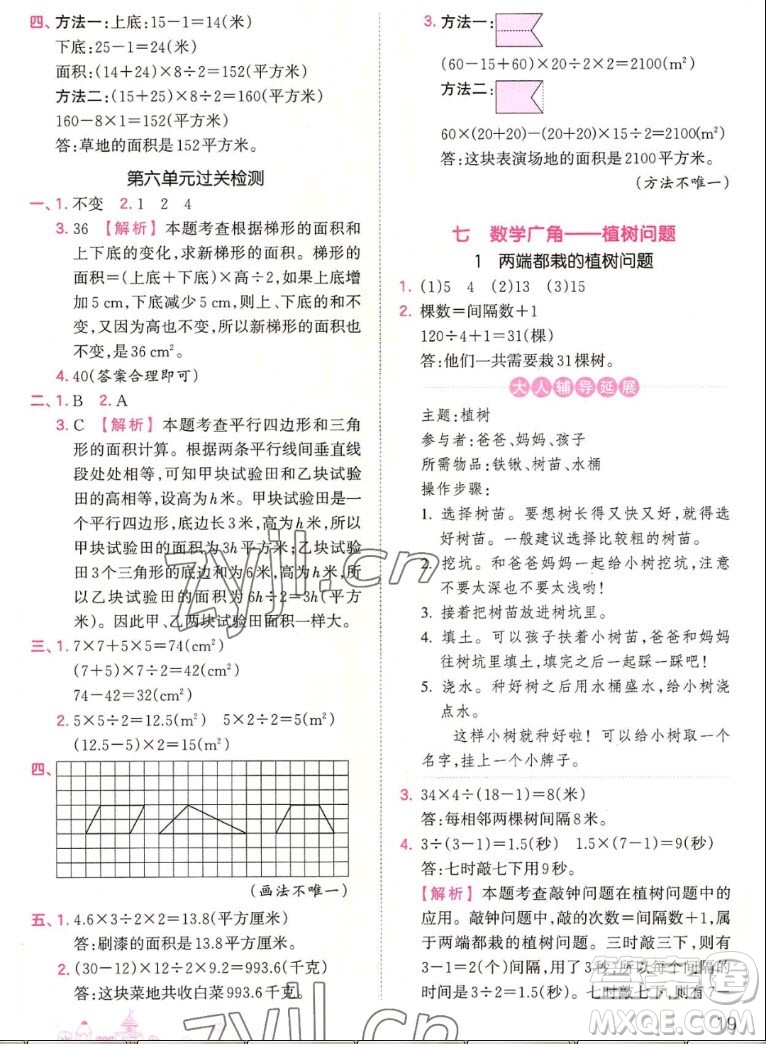 四、方法一:上底:15-1=14(米)
下底:25-1=24(米)
面积:(14+24)×8÷2=152(平方米)
方法二:(15+25)×8÷2=160(平方米)
160-8×1=152(平方米)
答:草地的面积是152平方米。
第六单元过关检测
一、1. 不变 2. 1 2 4
3. 36 【解析】本题考查根据梯形的面积和
上下底的变化,求新梯形的面积。梯形的
面积=(上底+下底)×高÷2,如果上底增
加5 cm,下底减少5 cm,则上、下底的和不
变,又因为高也不变,所以新梯形的面积也
不变,是36 cm²。
4. 40(答案合理即可)
二、1. B 2. A
3. C 【解析】本题考查平行四边形和三角
形的面积计算。根据两条平行线间垂直线
段处处相等,可知甲块试验田和乙块试验
田的高相等,设高为h米。甲块试验田是一
个平行四边形,底边长3米,高为h米,所以
甲块试验田的面积为3h平方米;乙块试验
田3个三角形的底边和为6米,高为h米,所
以乙块试验田的面积是6h÷2=3h(平方
米)。因此甲、乙两块试验田面积一样大。
三、1. 7×7+5×5=74(cm²)
(7+5)×7÷2=42(cm²)
74-42=32(cm²)
2. 5×5÷2=12.5(m²) 5×2÷2=5(m²)
(12.5-5)×2=15(m²)
四、
(画法不唯一)
五、1. 4.6×3÷2×2=13.8(平方厘米)
答:刷漆的面积是13.8平方厘米。
2. (30-12)×12÷2×9.2=993.6(千克)
答:这块菜地共收白菜993.6千克。
3. 方法一:
(60-15+60)×20÷2×2=2100(m²)
方法二:
60×(20+20)-(20+20)×15÷2=2100(m²)
答:这块表演场地的面积是2100平方米。
(方法不唯一)
七 数学广角——植树问题
1 两端都栽的植树问题
1. (1)5 4 (2)13 (3)15
2. 棵数=间隔数+1
120÷4+1=31(棵)
答:他们一共需要栽31棵树。
大人辅导延展
主题:植树
参与者:爸爸、妈妈、孩子
所需物品:铁锹、树苗、水桶
操作步骤:
1. 选择树苗。要想树长得又快又好,就得选
好树苗。一般建议选择比较粗的树苗。
2. 挖坑。和爸爸妈妈一起给小树挖坑,注意
不要太深也不要太浅哟!
3. 接着把树苗放进树坑里。
4. 填土。可以由孩子扶着小树苗,爸爸和妈妈
往树坑里填土,填完要一起踩一踩吧!
5. 浇水。种好树后用水桶盛水,给小树浇
点水。
这样小树就种好啦!可以给小树采
访一下,挂上一个小牌子。
3. 34×4÷(18-1)=8(米)
答:每相邻两棵树间隔8米。
4. 3÷(3-1)=1.5(秒) 1.5×(7-1)=9(秒)
答:七时敲七下用9秒。
【解析】本题考查敲钟问题在植树问题中的
应用。敲钟问题中,敲的次数=间隔数+1,属
于两端都栽的植树问题。三时敲三下,则有
3-1=2(个)间隔,用了3秒,所以每个间隔的
时间是3÷2=1.5(秒)。七时敲七下,则有7-
19
zyjl.cn
zyjl.cn
答案圈
MXQE.COM